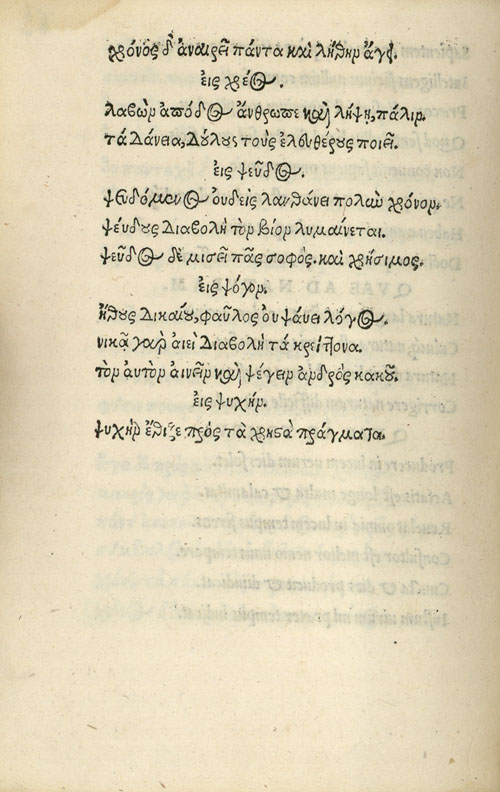 χρόνος δ᾽ ἀναιρεῖ πάντα καὶ λήθην ἄγει.
εἰς χρέος.
λαβὼν ἀπόδος ἄνθρωπε καὶ λήψῃ, πάλιν.
τὰ Δάνεια, Δούλους τοὺς ἐλευθέρους ποιεῖ.
εἰς ψεῦδος.
ψευδόμενος οὐδεὶς λανθάνει πολὺν χρόνον.
ψεύδους Διαβολὴ τὸν βίον λυμαίνεται.
ψεῦδος δὲ μισεῖ πᾶς σοφός. καὶ χρήσιμος.
εἰς ψόγον.
ἤθους Δικαίου, φαῦλος οὐ ψαύει λόγος.
νικᾷ γὰρ αἰεὶ Διαβολὴ τὰ κρείττονα.
τὸν αὐτὸν αἰνεῖν καὶ ψέγειν ἀνδρὸς κακοῦ.
εἰς ψυχήν.
ψυχὴν ἔθιζε πρὸς τὰ χρηστὰ πράγματα.